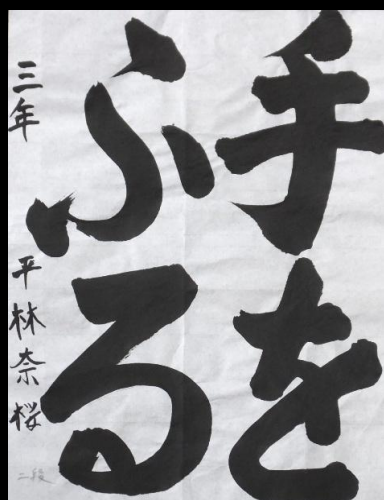 手を
ふる
三年 平林奈桜
二段